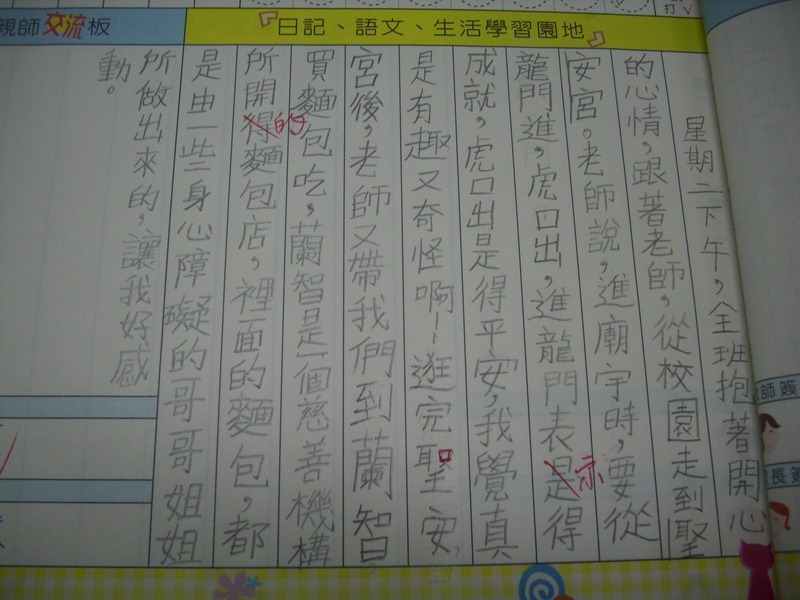 打✓
『日記、語文、生活學習園地』
親師交流板
星期二下午,全班抱著開心
的心情,跟著老師,從校園走到聖
安宮。老師說,進廟宇時,要從
龍門進,虎口出,進龍門表是示得
成就,虎口出是得平安,我覺真
是有趣又奇怪啊!逛完聖安
宮後,老師又帶我們到蘭智
買麵包吃,蘭智是一個慈善機構
所開得的麵包店,裡面的麵包,都
是由一些身心障礙的哥哥姐姐
所做出來的,讓我好感
動。
師簽
長簽